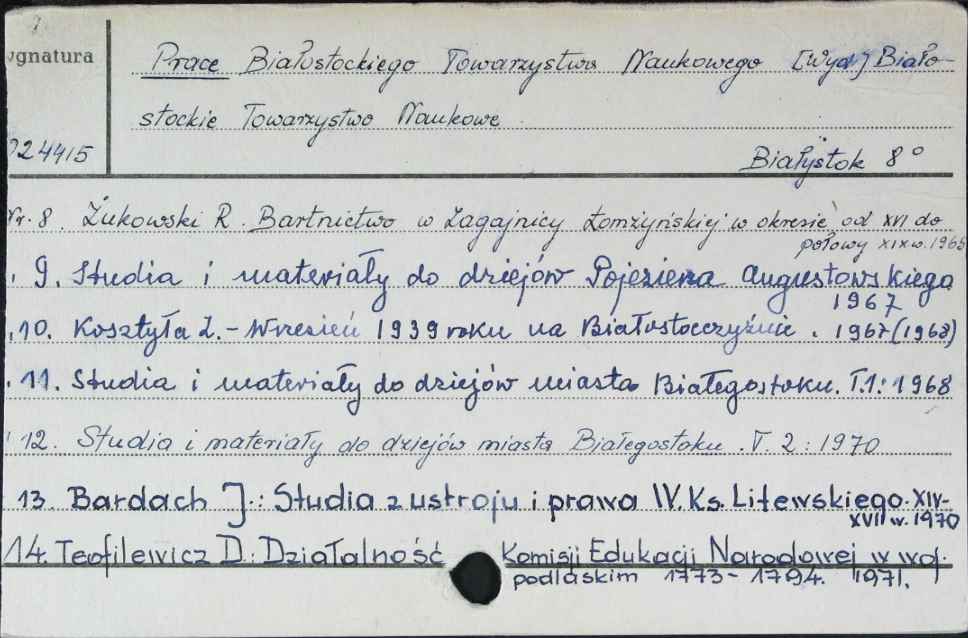 ygnatura
Prace Białostockiego Towarzystwa Naukowego [Wyd.] Biało-
stockie Towarzystwo Naukowe
24415
Białystok 8°
Nr. 8. Żukowski R. Bartnictwo w Zagajnicy Łomżyńskiej w okresie od XVI do
połowy XIX w. 1965
9. Studia i materiały do dziejów Pojezierza Augustowskiego
1967
10. Kosztyła Z. - Wrzesień 1939 roku na Białostocczyźnie. 1967 (1968)
11. Studia i materiały do dziejów miasta Białegostoku. T.1: 1968
12. Studia i materiały do dziejów miasta Białegostoku. T. 2: 1970
13. Bardach J.: Studia z ustroju i prawa W. Ks. Litewskiego XIV-
XVII w. 1970
14. Teofilewicz D: Działalność Komisji Edukacji Narodowej w woj.
podlaskim 1773-1794. 1971.